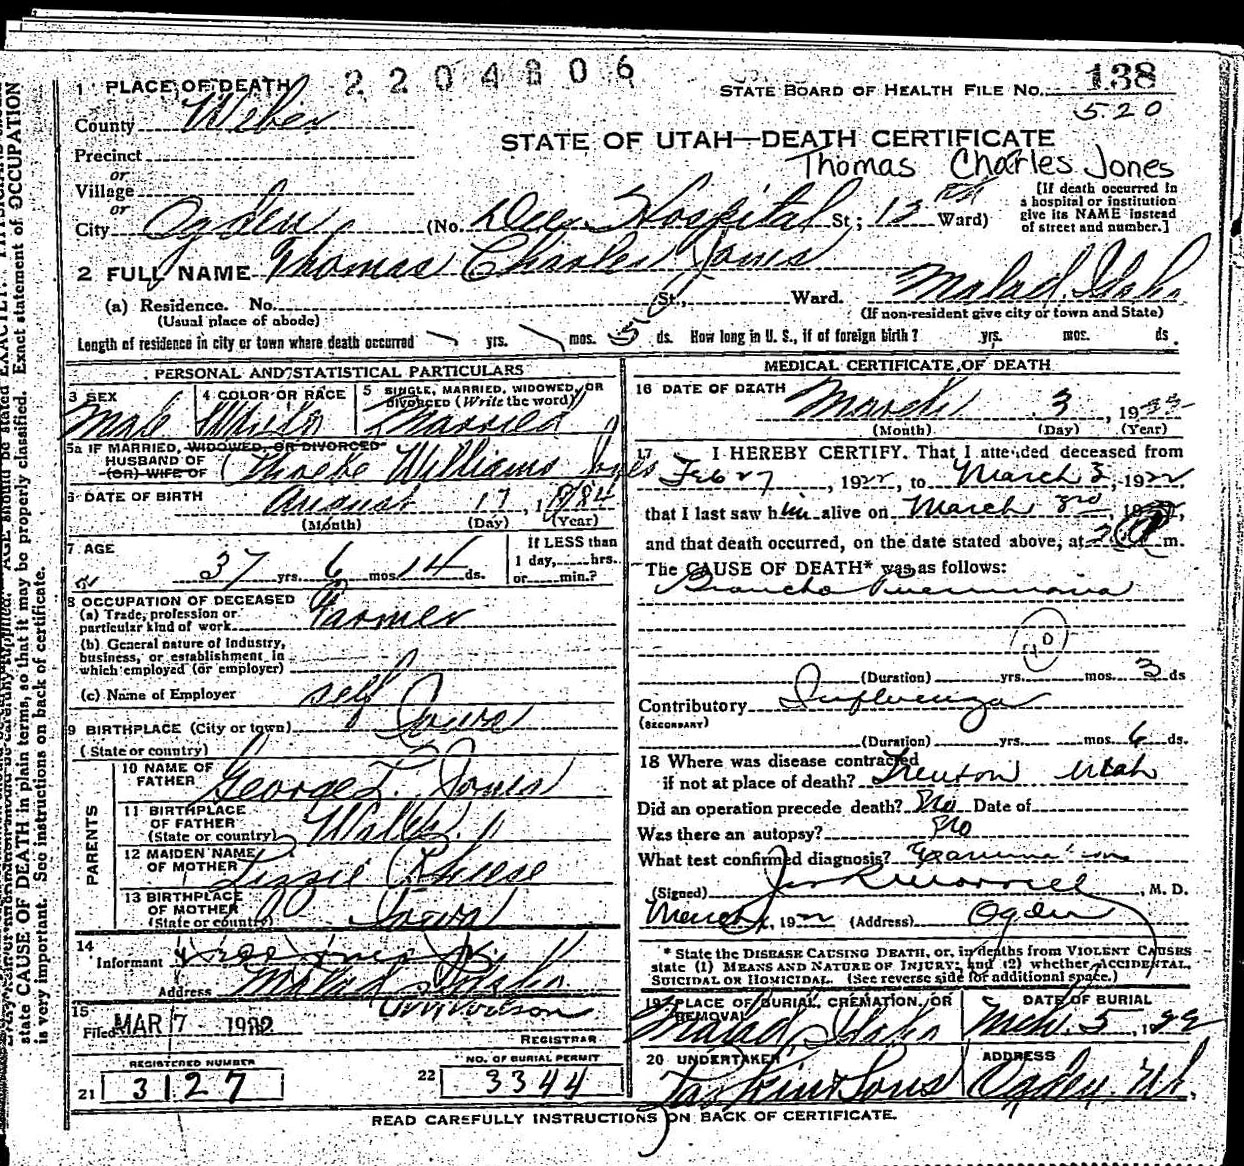 1 PLACE OF DEATH 2204806
STATE BOARD OF HEALTH FILE NO. 138
520
County Weber
STATE OF UTAH—DEATH CERTIFICATE
Precinct
or
Village
Thomas Charles Jones
or
City Ogden (No. Dee Hospital St; 12 Ward)
[If death occurred in a hospital or institution give its NAME instead of street and number.]
2 FULL NAME Thomas Charles Jones
(a) Residence. No. St., Ward. Malad, Idaho
(Usual place of abode) (If non-resident give city or town and State)
Length of residence in city or town where death occurred yrs. mos. 5 ds. How long in U. S., if of foreign birth? yrs. mos. ds.
PERSONAL AND STATISTICAL PARTICULARS
3 SEX 4 COLOR OR RACE 5 SINGLE, MARRIED, WIDOWED, OR DIVORCED (Write the word)
Male White Married
5a IF MARRIED, WIDOWED, OR DIVORCED
HUSBAND OF
(OR) WIFE OF Phoebe Williams
6 DATE OF BIRTH August 17, 1884
(Month) (Day) (Year)
7 AGE 37 yrs. 6 mos. 14 ds.
If LESS than 1 day, hrs. or min.?
8 OCCUPATION OF DECEASED
(a) Trade, profession or particular kind of work Farmer
(b) General nature of industry, business, or establishment in which employed (or employer)
(c) Name of Employer self
9 BIRTHPLACE (City or town) Iowa
(State or country)
PARENTS
10 NAME OF FATHER George L. Jones
11 BIRTHPLACE OF FATHER
(State or country) Wales
12 MAIDEN NAME OF MOTHER Lizzie Rheese
13 BIRTHPLACE OF MOTHER
(State or country) Iowa
14
Informant
Address Malad Idaho
15
Filed MAR 7 - 1922
REGISTRAR
REGISTERED NUMBER NO. OF BURIAL PERMIT
21 3127 22 3344
MEDICAL CERTIFICATE OF DEATH
16 DATE OF DEATH March 3, 1922
(Month) (Day) (Year)
17 I HEREBY CERTIFY, That I attended deceased from
Feb 27, 1922, to March 3, 1922
that I last saw him alive on March 3rd, 1922,
and that death occurred, on the date stated above, at m.
The CAUSE OF DEATH* was as follows:
Broncho Pneumonia
(Duration) yrs. mos. 3 ds
Contributory Influenza
(SECONDARY)
(Duration) yrs. mos. 6 ds.
18 Where was disease contracted
if not at place of death? Trenton Utah
Did an operation precede death? No Date of
Was there an autopsy? No
What test confirmed diagnosis? Examination
(Signed) Morrell, M. D.
March, 1922 (Address) Ogden
* State the DISEASE CAUSING DEATH, or, in deaths from VIOLENT CAUSES
state (1) MEANS AND NATURE OF INJURY, and (2) whether ACCIDENTAL,
SUICIDAL OR HOMICIDAL. (See reverse side for additional space.)
19 PLACE OF BURIAL, CREMATION, OR REMOVAL DATE OF BURIAL
Malad, Idaho Mch. 5, 1922
20 UNDERTAKER ADDRESS
Larkin & Sons Ogden Ut.
READ CAREFULLY INSTRUCTIONS ON BACK OF CERTIFICATE.
state CAUSE OF DEATH in plain terms, so that it may be properly classified. Exact statement of OCCUPATION
is very important. See instructions on back of certificate.